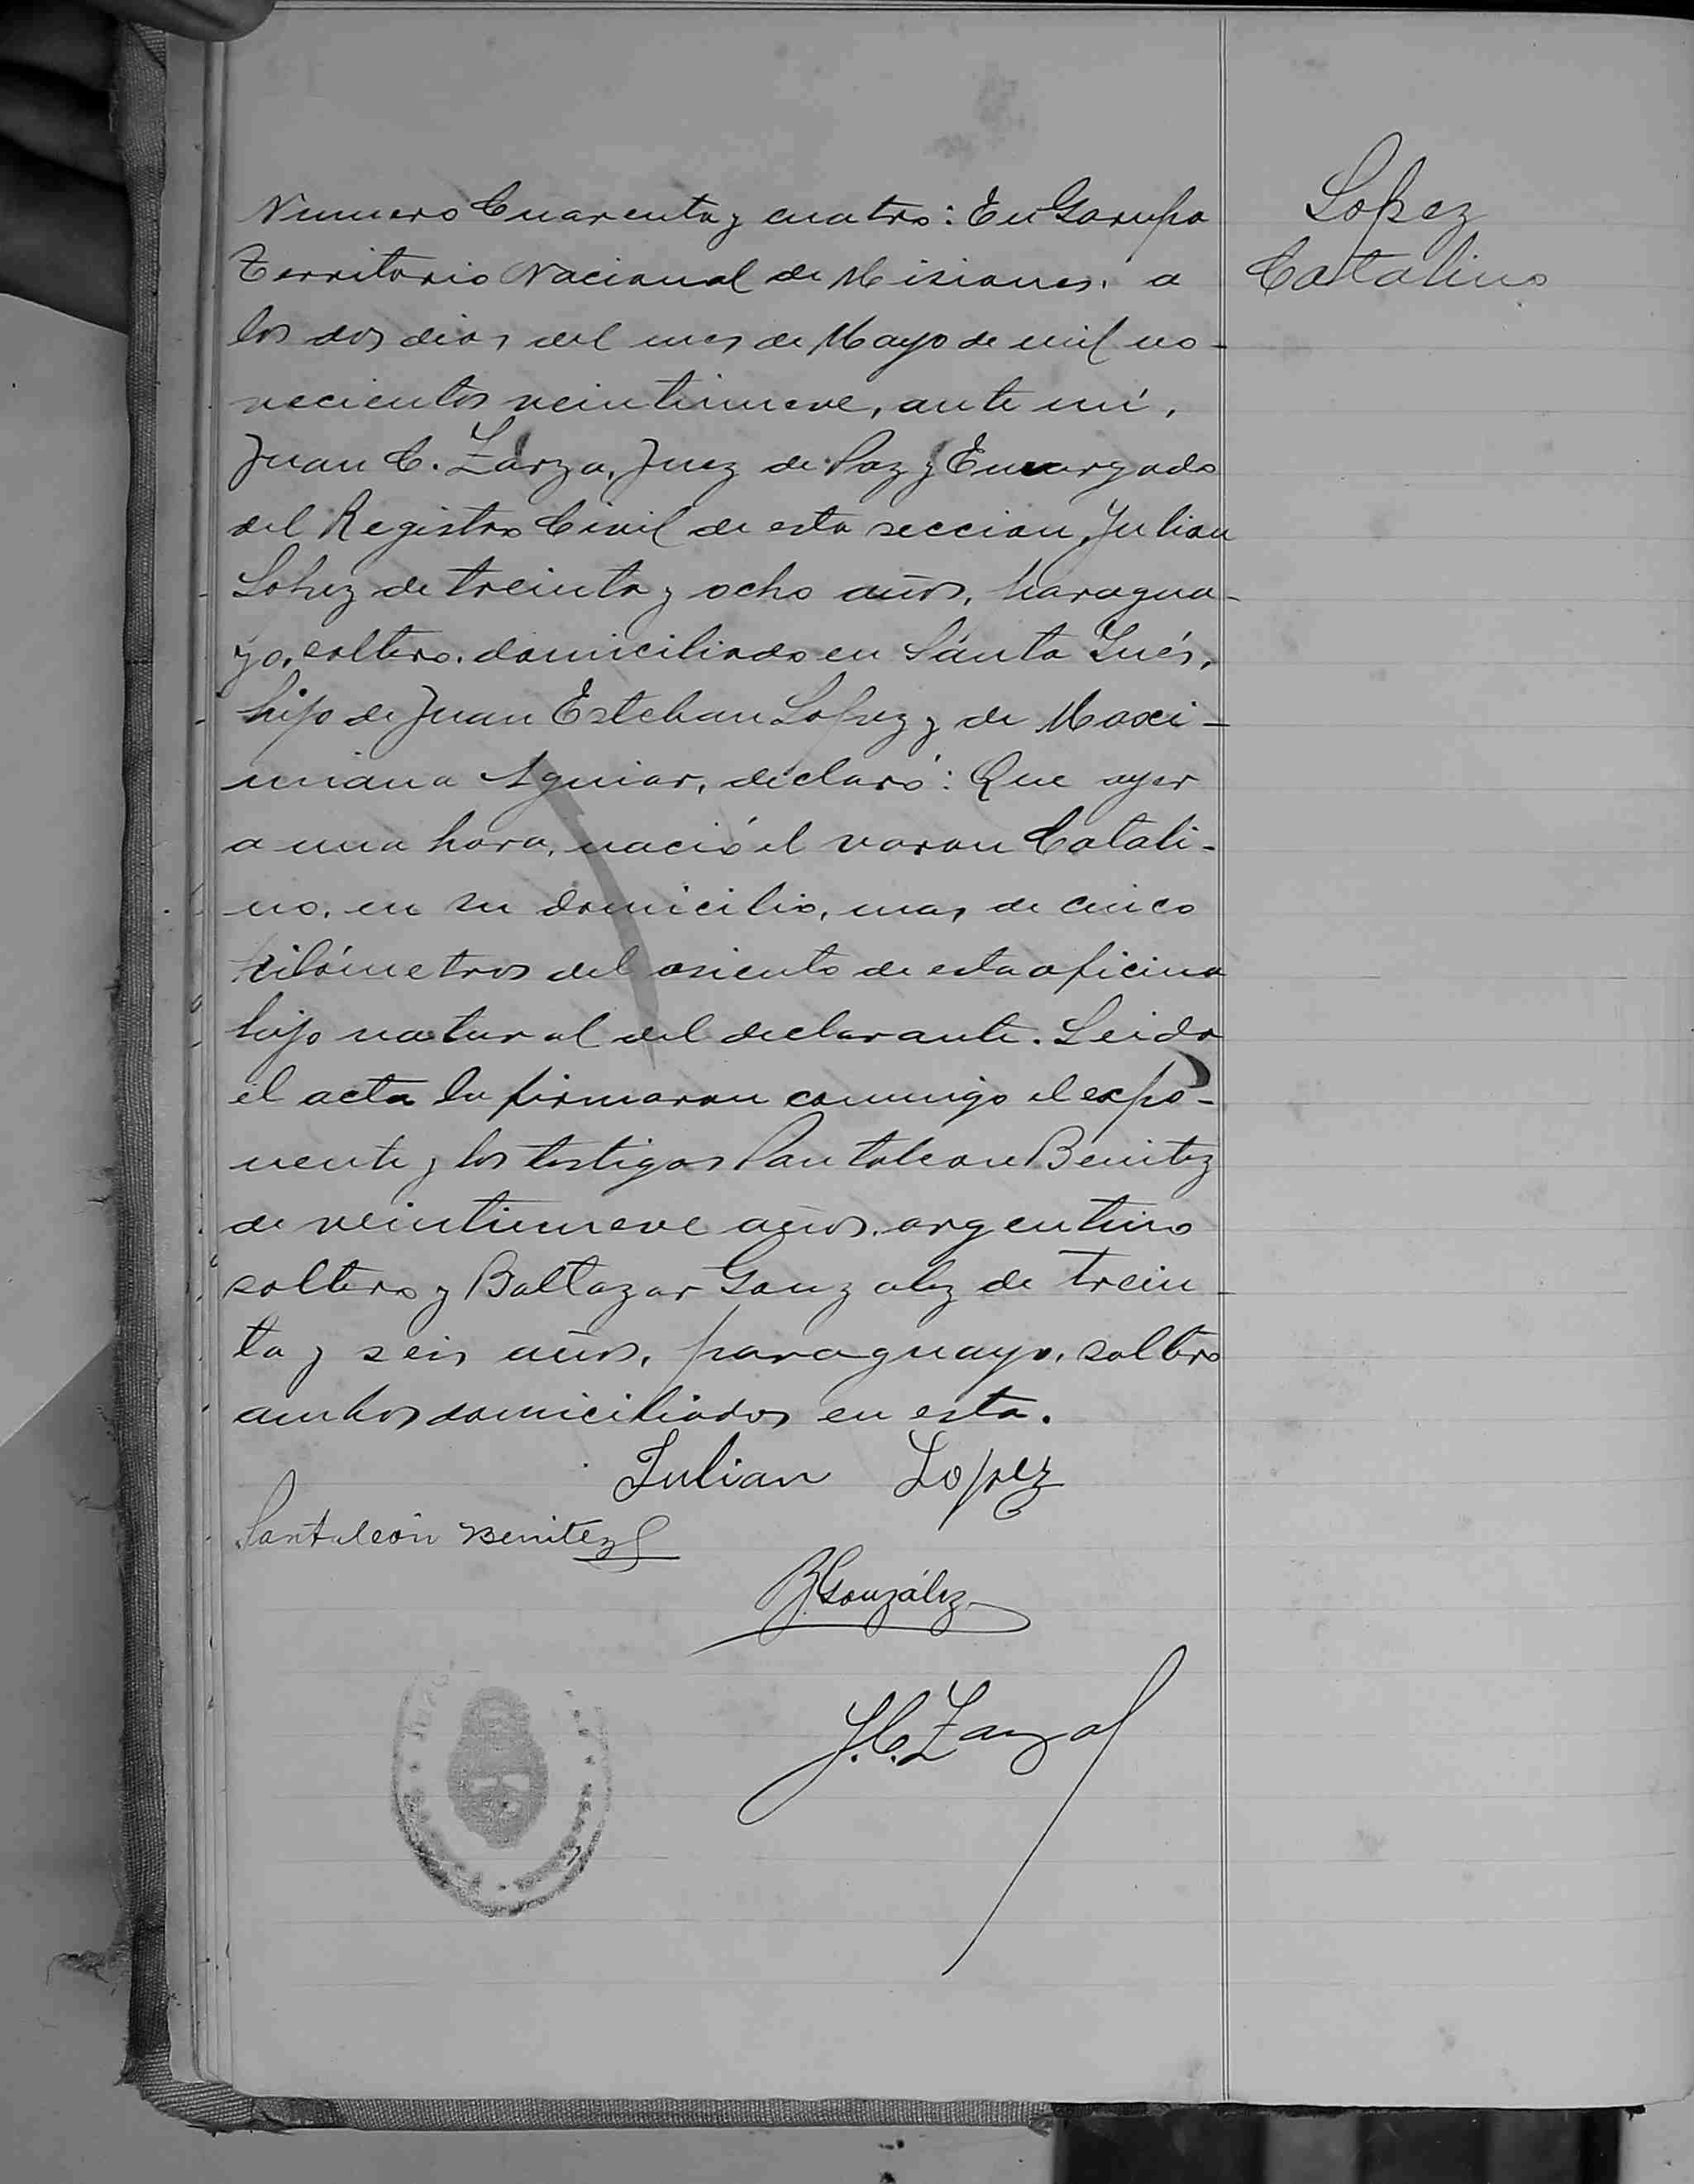 Numero Cuarenta y cuatro: En Garupa
Territorio Nacional de Misiones. a
los dos dias del mes de Mayo de mil no-
vecientos veintinueve, ante mí,
Juan C. Zarza, Juez de Paz y Encargado
del Registro Civil de esta seccion, Julian
Lopez de treinta y ocho años, paragua-
yo, soltero, domiciliado en Santa Inés,
hijo de Juan Esteban Lopez y de Maxi-
miana Aguiar, declaró: Que ayer
a una hora, nació el varon Catali-
no, en su domicilio, mas de cinco
kilómetros del asiento de esta oficina
hijo natural del declarante. Leida
el acta la firmaron conmigo el expo-
nente y los testigos Pantaleon Benitez
de veintinueve años, argentino
soltero y Baltazar Gonzalez de trein-
ta y seis años, paraguayo, soltero
ambos domiciliados en esta.
Julian Lopez
Pantaleón Benitez
B. González
J. C. Zarza
Lopez
Catalino